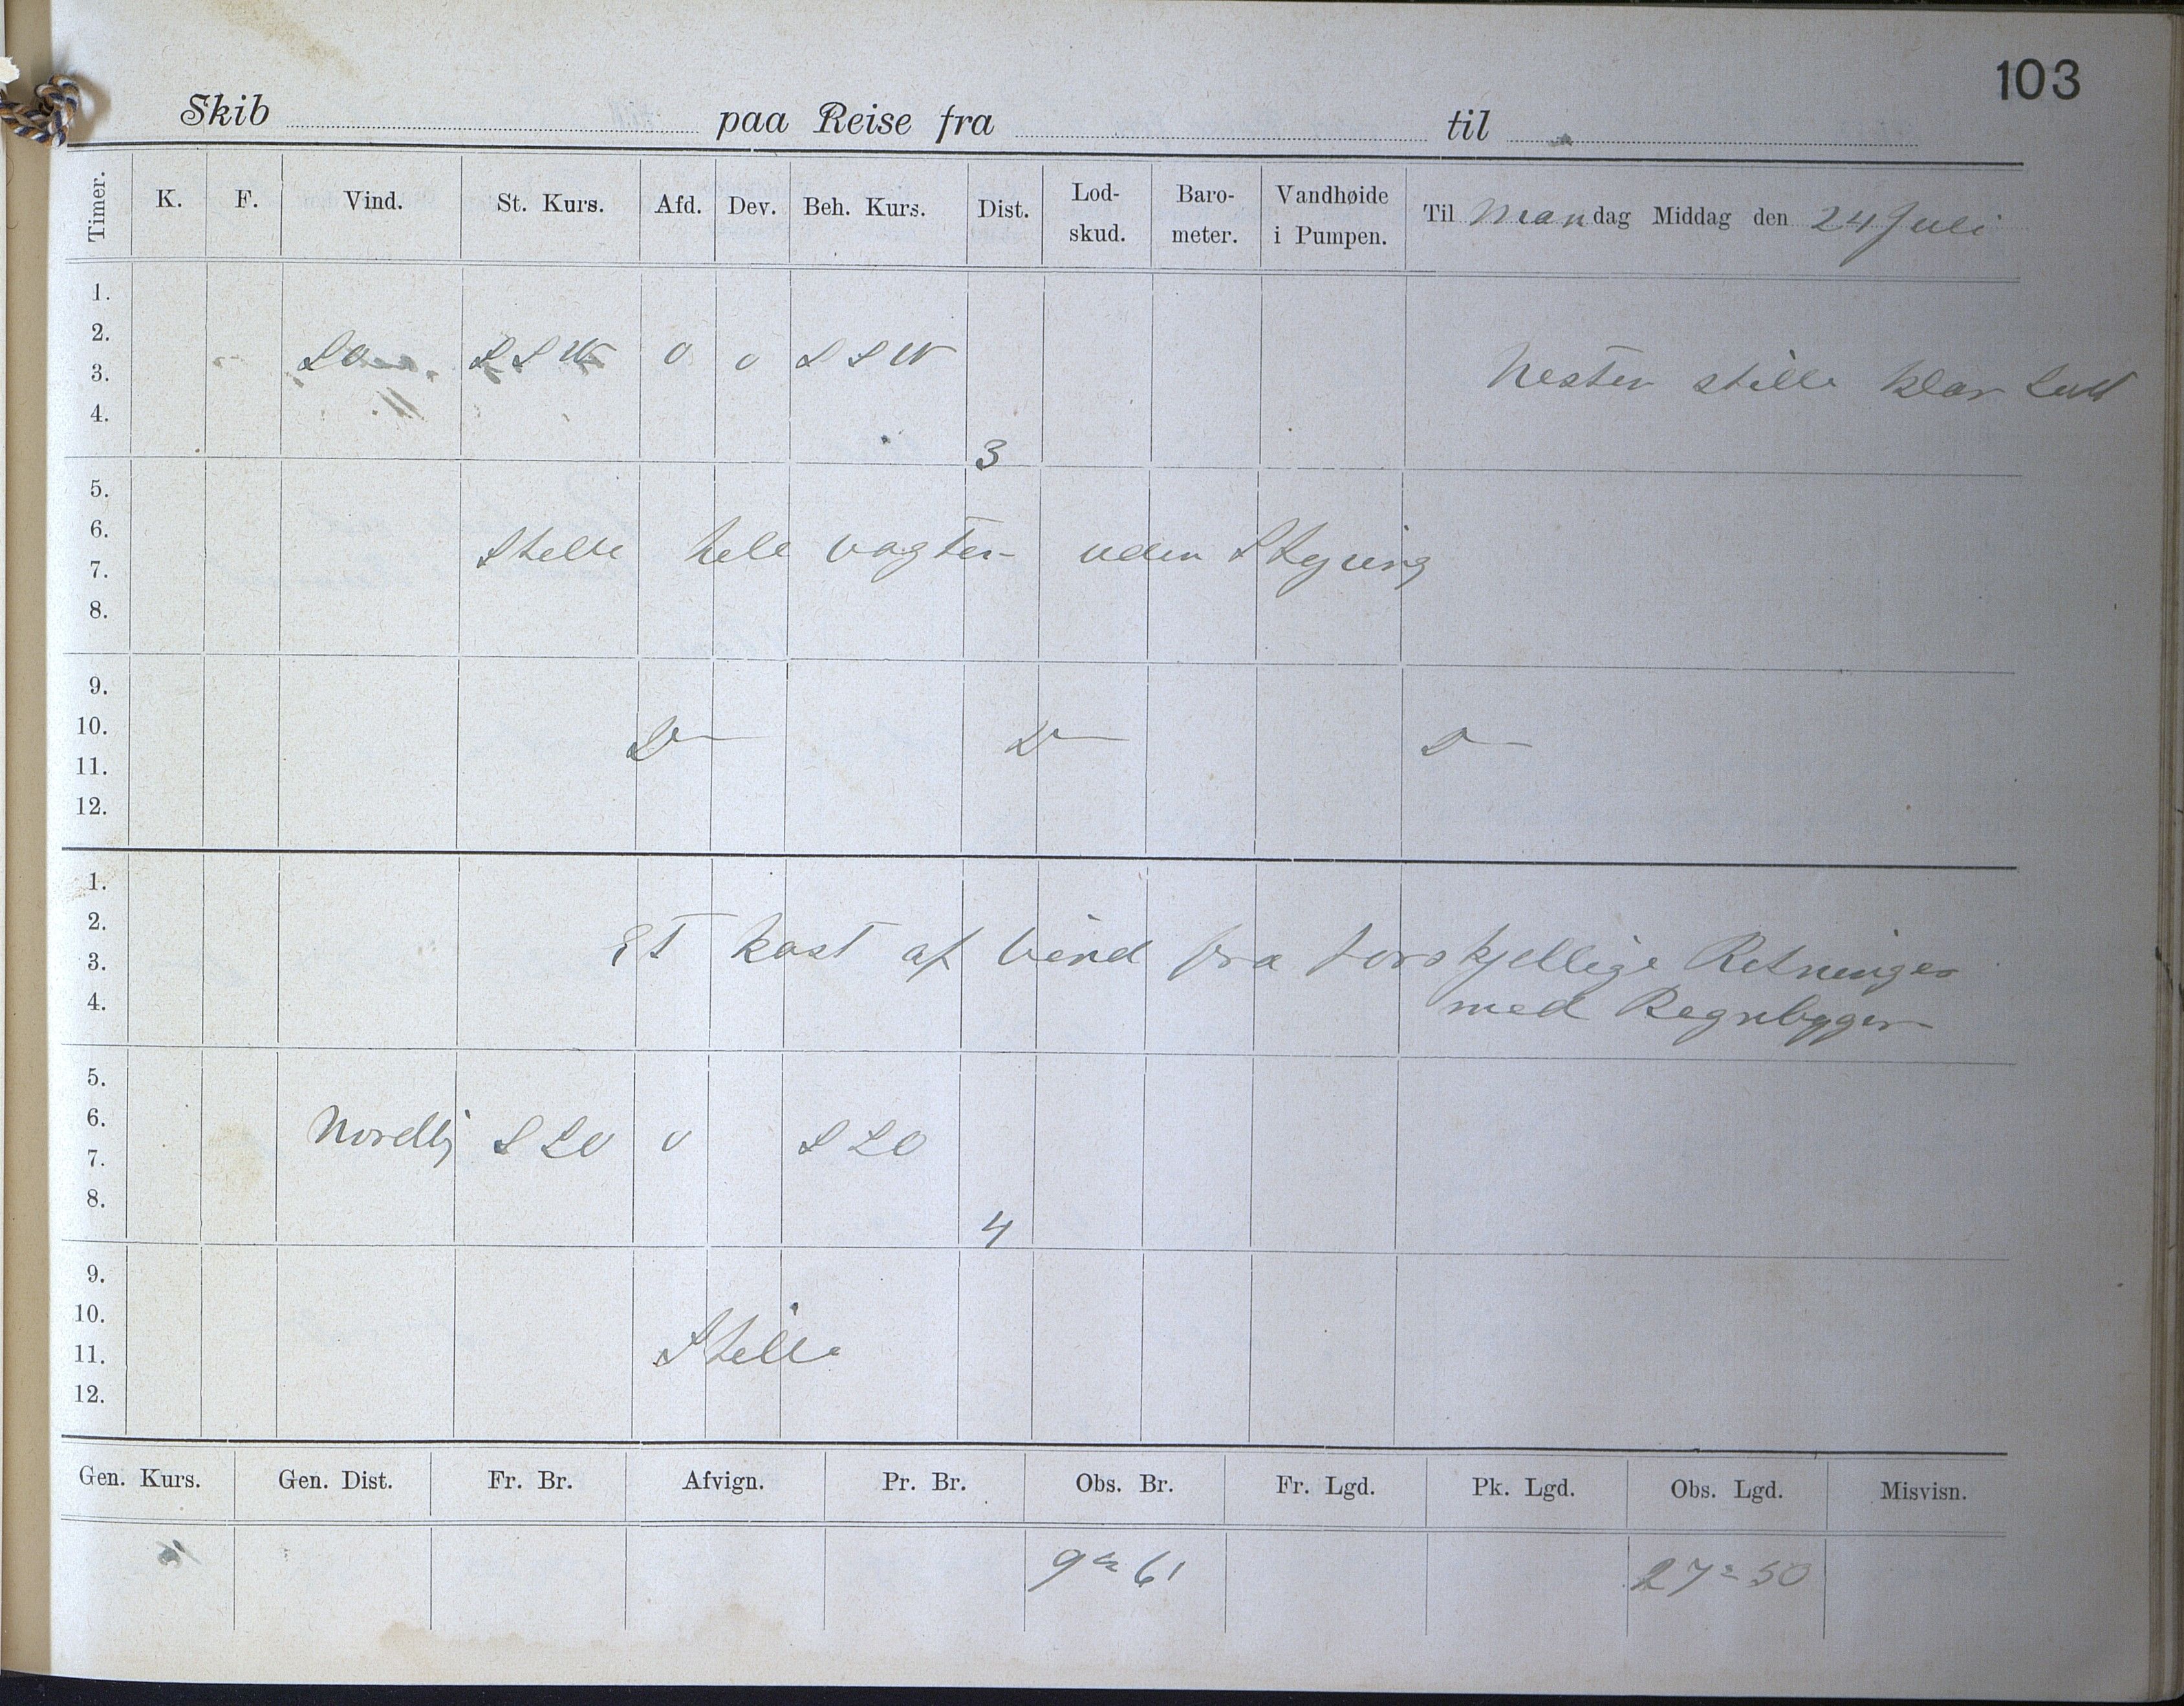 103
Skib paa Reise fra til
Timer. K. F. Vind. St. Kurs. Afd. Dev. Beh. Kurs. Dist. Lod-skud. Baro-meter. Vandhøide i Pumpen. Til Mandag Middag den 24 Juli
1.
2.
3. SO SSW 0 0 SSW Nesten stille klar Luft
4. 3
5.
6.
7. Stille hele vagten uden Styring
8.
9.
10. Do Do Do
11.
12.
1.
2.
3. Et kast af Vind fra forskjellige Retninger
4. med Regnbyger
5.
6. Nordlig SSO 0 SSO
7.
8. 4
9.
10.
11. Stille
12.
Gen. Kurs. Gen. Dist. Fr. Br. Afvign. Pr. Br. Obs. Br. Fr. Lgd. Pk. Lgd. Obs. Lgd. Misvisn.
9 = 61 27 = 50